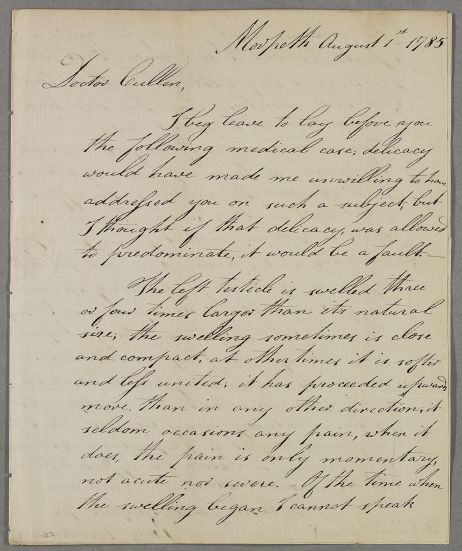 Morpeth August 1st 1785
Doctor Cullen,
I beg leave to lay before you
the following medical case, delicacy
would have made me unwilling to have
addressed you on such a subject, but
I thought if that delicacy, was allowed
to predominate, it would be a fault.—
The left testicle is swelled three
or four times larger than its natural
size, the swelling sometimes is close
and compact, at other times it is softer
and less united; it has proceeded upwards
more, than in any other direction, it
seldom occasions any pain, when it
does, the pain is only momentary,
not acute nor severe. Of the time when
the swelling began I cannot speak